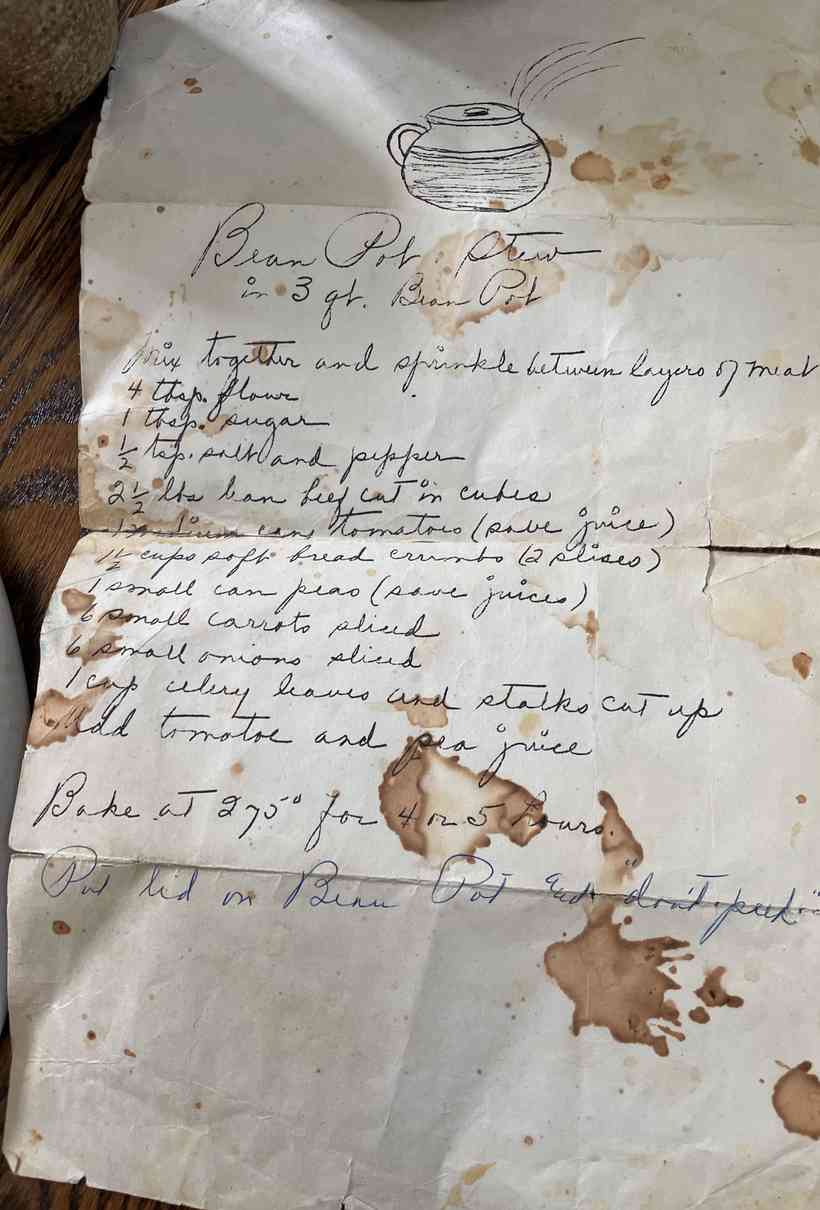 Bean Pot Stew
in 3 qt. Bean Pot
Mix together and sprinkle between layers of meat
4 tbsp. flour
1 tbsp. sugar
1/2 tsp. salt and pepper
2 1/2 lbs lean beef cut in cubes
1 medium cans tomatoes (save juice)
1 1/2 cups soft bread crumbs (2 slises)
1 small can peas (save juices)
6 small carrots sliced
6 small onions sliced
1 cup celery leaves and stalks cut up
Add tomatoe and pea juice
Bake at 275° for 4 or 5 hours.
Put lid on Bean Pot and "don't peek"